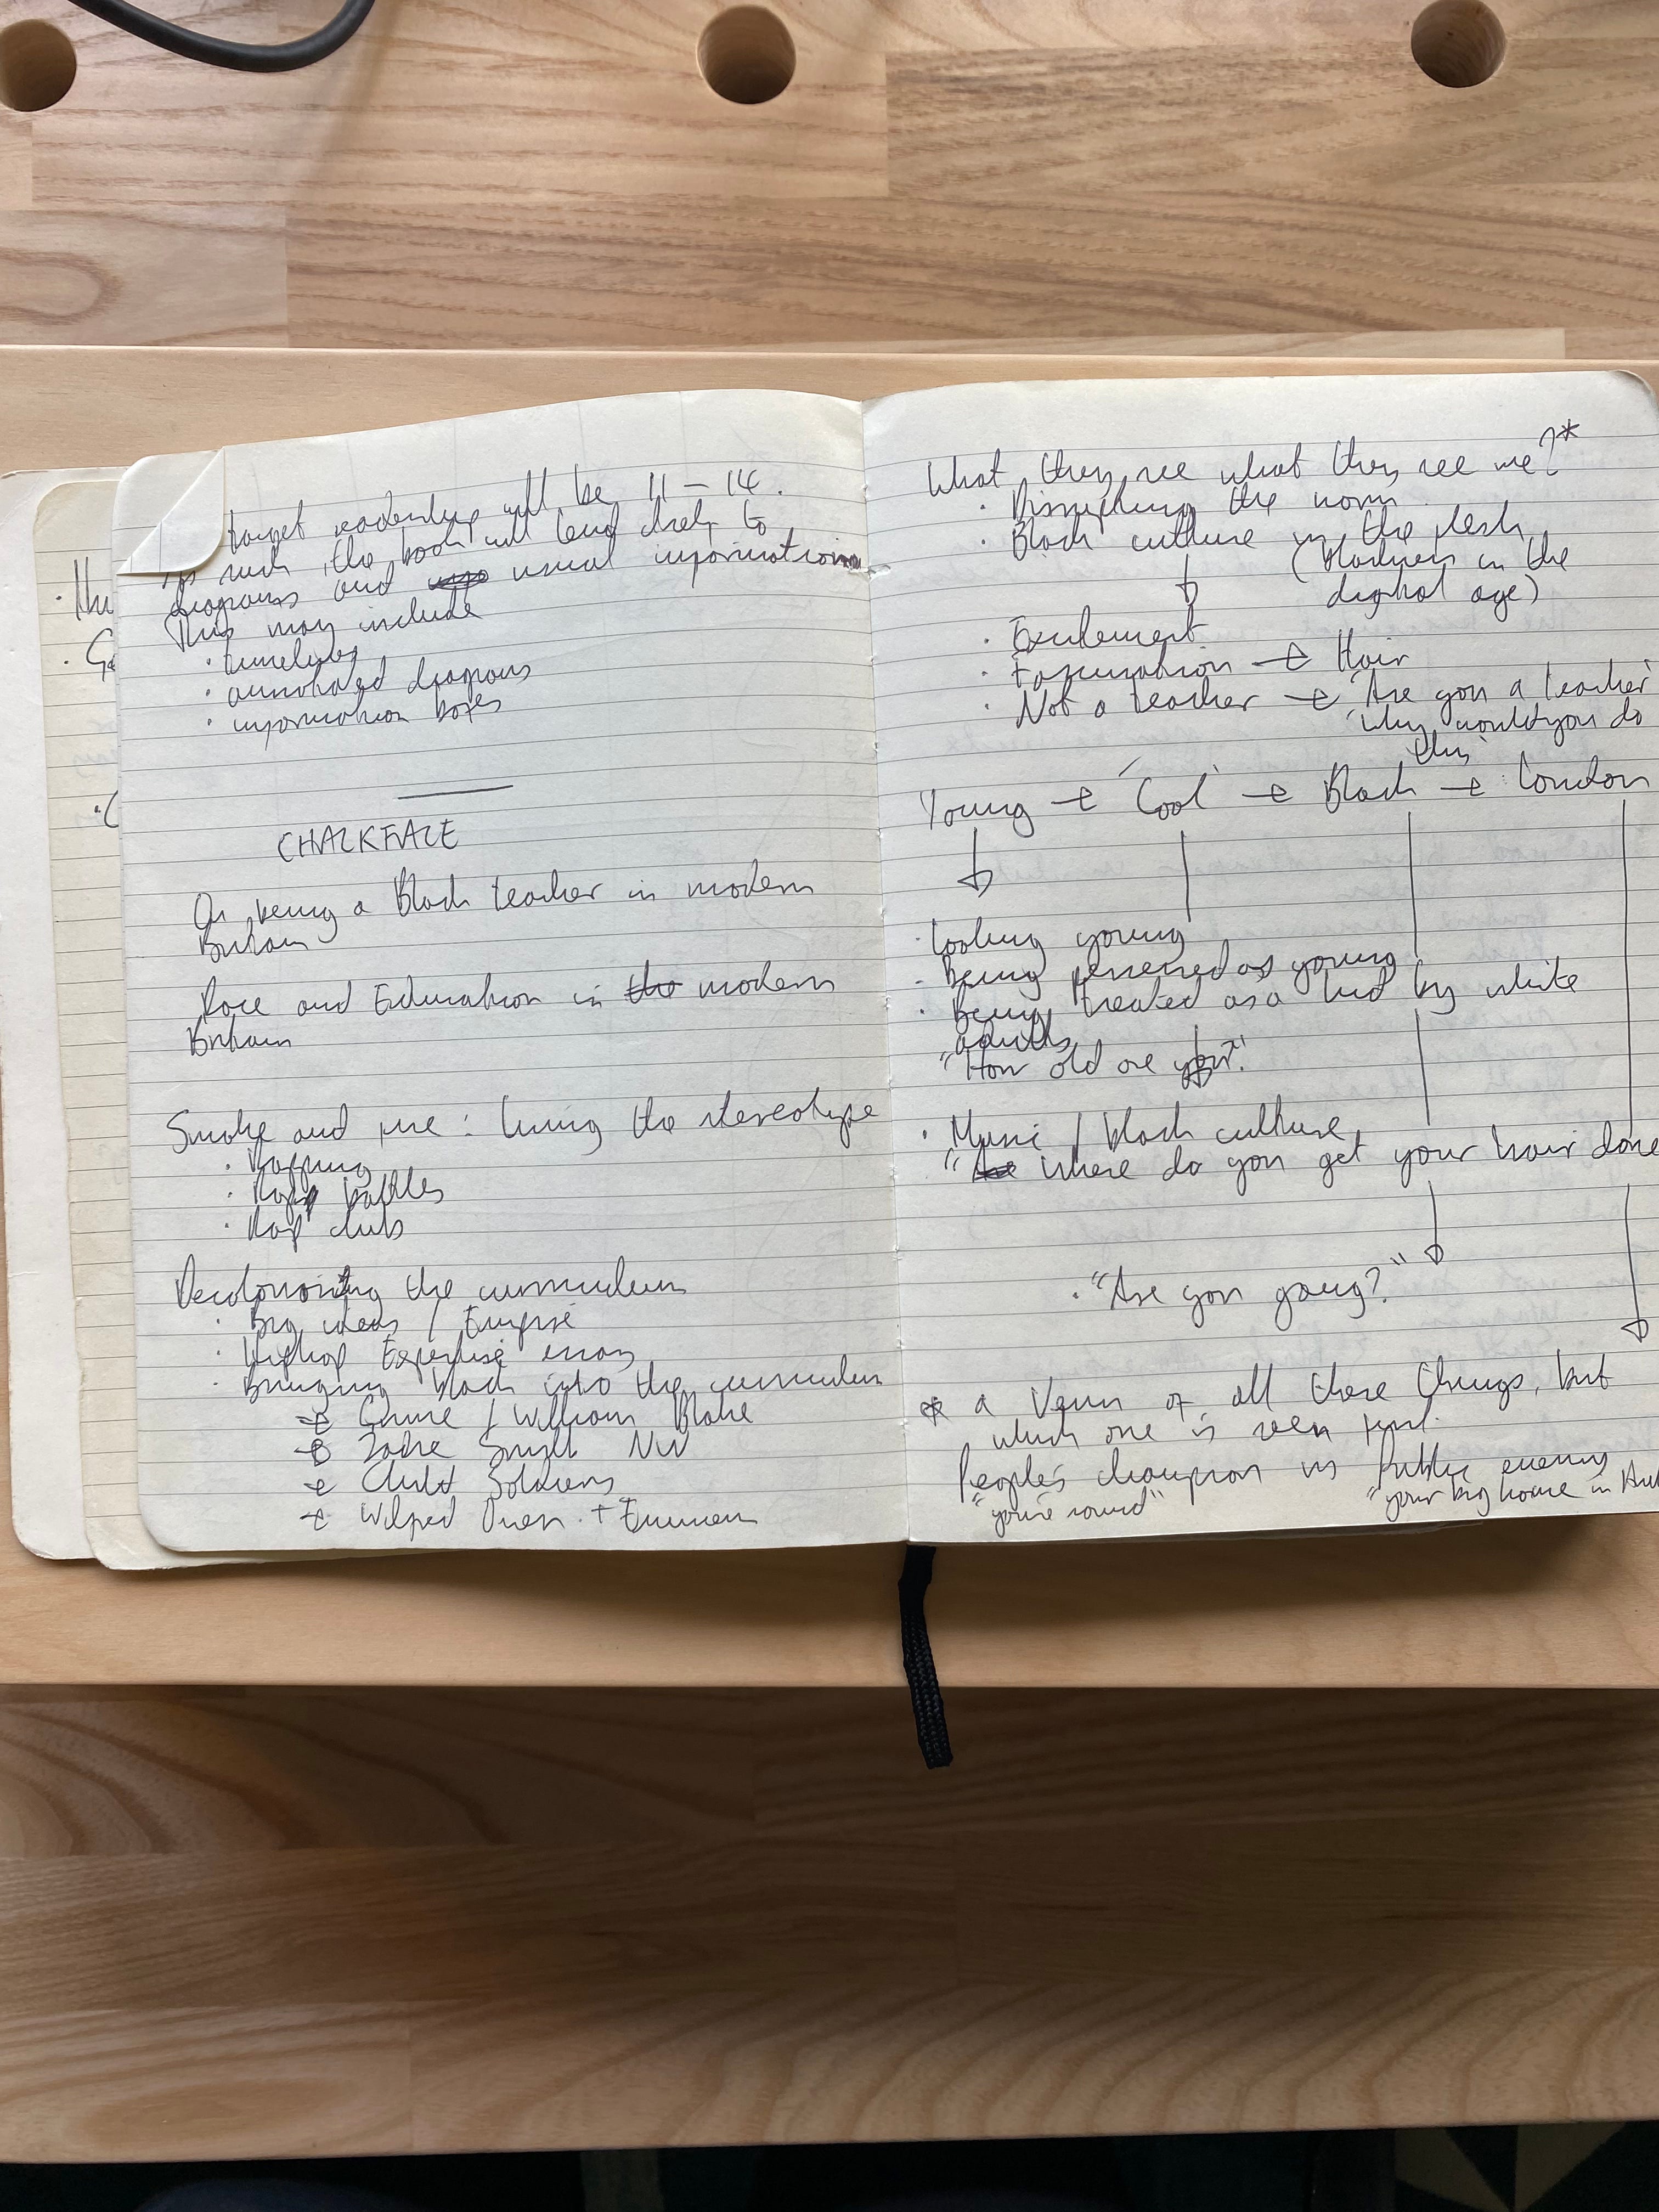 target readership will be 11 – 14.
As such, the book will lend itself to
diagrams and usual informational
This may include
· timelines
· annotated diagrams
· information boxes
CHALKFACE
On being a Black teacher in modern
Britain
Race and Education in the modern
Britain
Smoke and : living the stereotype
· Rapping
· Rap battles
· Rap club
Decolonising the curriculum
· Big ideas / Empire
· Hiphop Expertise essay
· Bringing black into the curriculum
→ Grime / William Blake
→ Zadie Smith NW
→ Child Soldiers
→ Wilfred Owen + Eminem
What they see what they see me?*
· Disrupting the norm
· Black culture in the flesh
(Blackness in the
digital age)
· Excitement
· Fascination → Hair
· Not a teacher → 'Are you a teacher'
'Why would you do
this'
Young → 'Cool' → Black → London
· Looking young
· Being perceived as young
· Being treated as a kid by white
adults
"How old are you?"
· Music / black culture
"where do you get your hair done
· "Are you gang?"
* a Venn of all these things, but
which one is seen first.
People's champion vs Public enemy
"you're sound" "your big house in